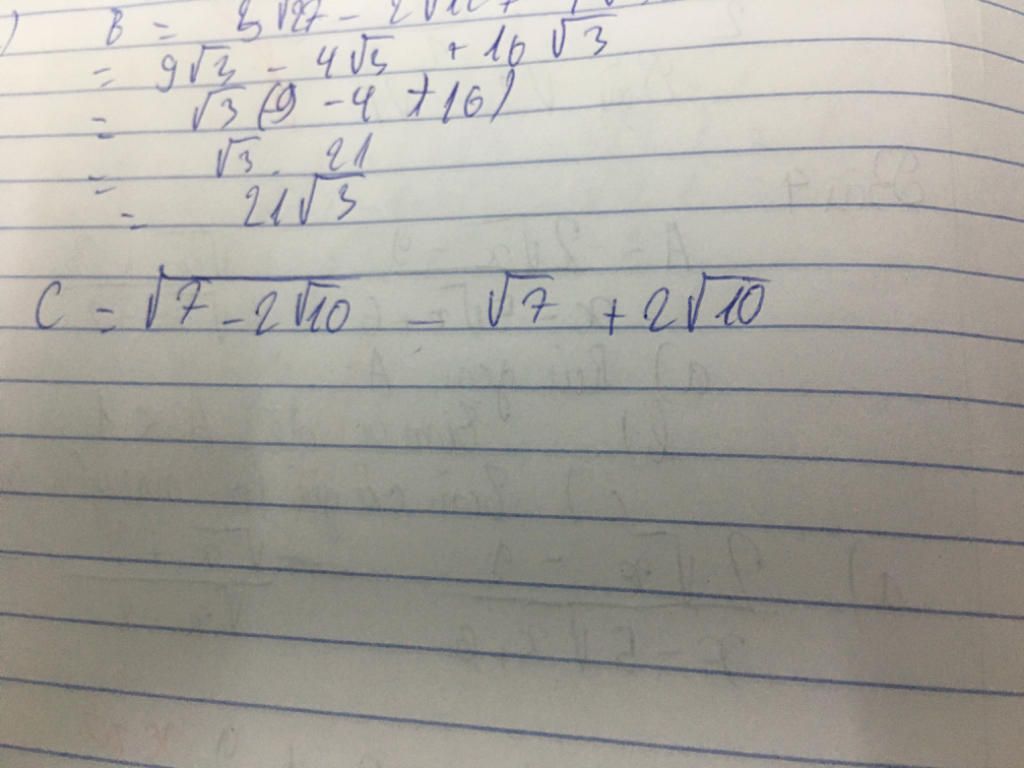 ) B = 3√27 - 2√12
= 9√3 - 4√3 + 16√3
= √3 (9 - 4 + 16)
= √3 . 21
= 21√3
C = √(7 - 2√10) - √7 + 2√10